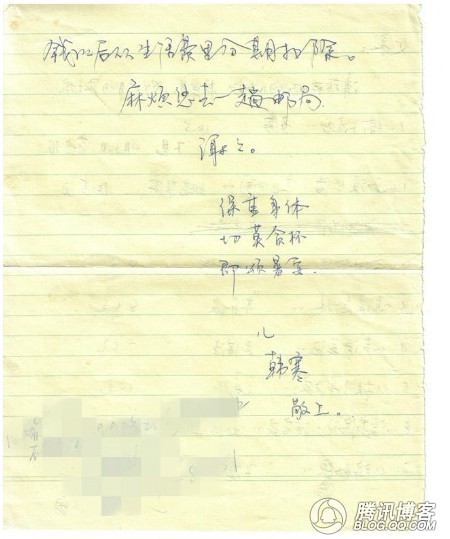 钱以后从生活费里分期扣除。
麻烦您去一趟邮局
谢之。
保重身体
切莫贪杯
即颂暑安.
儿
韩寒
敬上。
腾讯博客
BLOG.QQ.COM